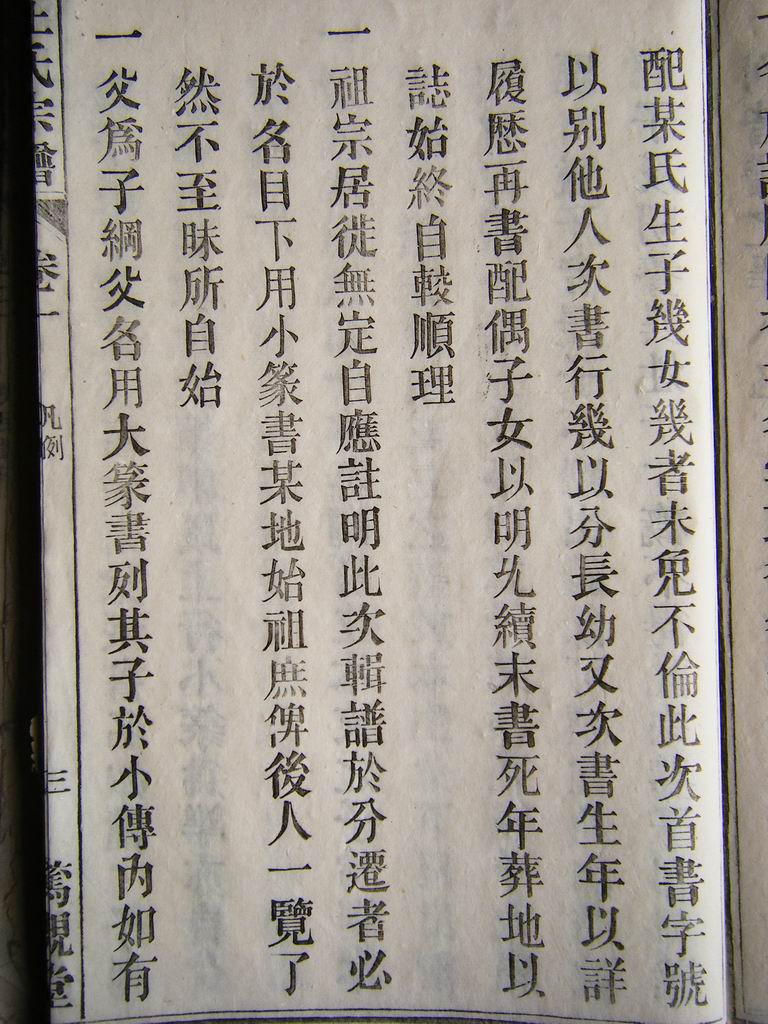 配某氏生子幾女幾者未免不倫此次首書字號
以别他人次書行幾以分長幼又次書生年以詳
履歷再書配偶子女以明九續末書死年葬地以
誌始終自較順理
一祖宗居徙無定自應註明此次輯譜於分遷者必
於名目下用小篆書某地始祖庶俾後人一覽了
然不至昧所自始
一父爲子綱父名用大篆書刻其子於小傳內如有
氏宗譜
卷一
凡例
三
篤親堂